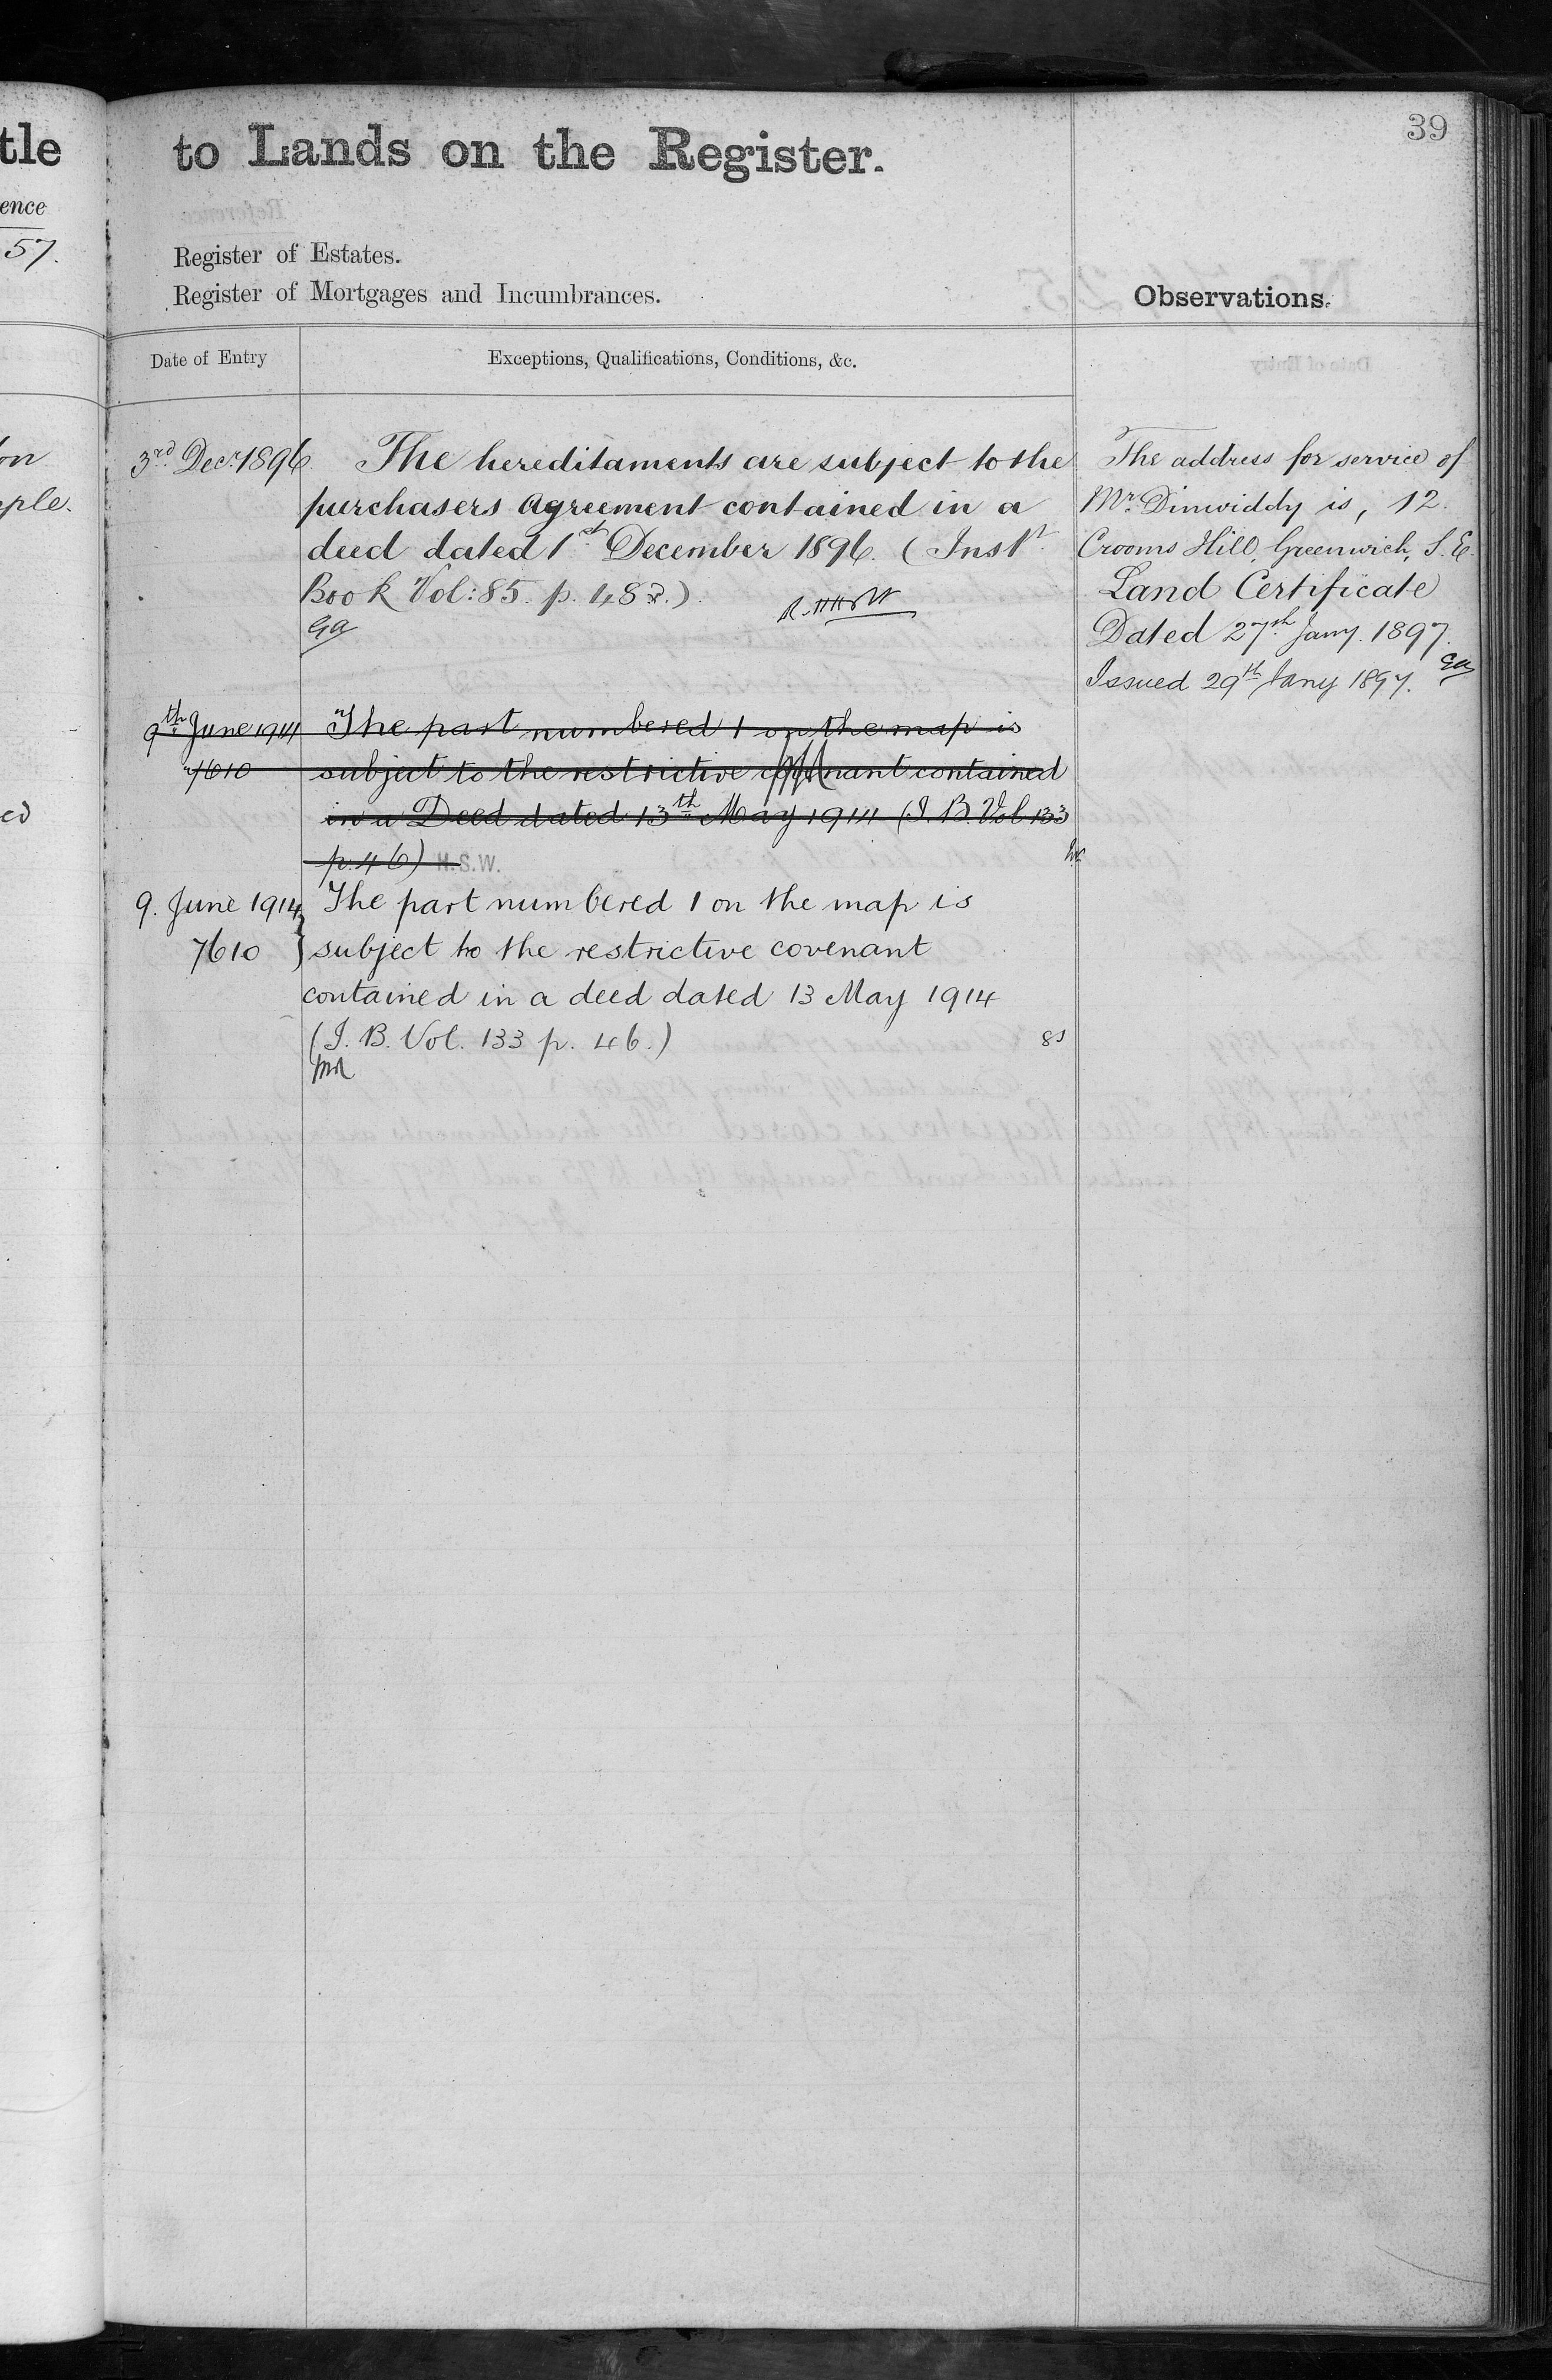 tle
ence
57.
on
ple.
ed
39
to Lands on the Register.
Register of Estates.
Register of Mortgages and Incumbrances.
Observations.
Date of Entry
Exceptions, Qualifications, Conditions, &c.
3rd Decr. 1896. The hereditaments are subject to the
purchasers Agreement contained in a
deed dated 1st December 1896. (Instt.
Book Vol: 85. p. 482.).
Ga
9th June 1914 The part numbered 1 on the map is
7610 subject to the restrictive covenant contained
in a Deed dated 13th May 1914 (I. B. Vol 133
p. 46) H.S.W.
9. June 1914 The part numbered 1 on the map is
7610 } subject to the restrictive covenant
contained in a deed dated 13 May 1914
(I. B. Vol. 133 p. 46.)
The address for service of
Mr. Dinwiddy is, 12.
Crooms Hill, Greenwich, S.E.
Land Certificate
Dated 27th Jany. 1897.
Issued 29th Jany 1897. Ga